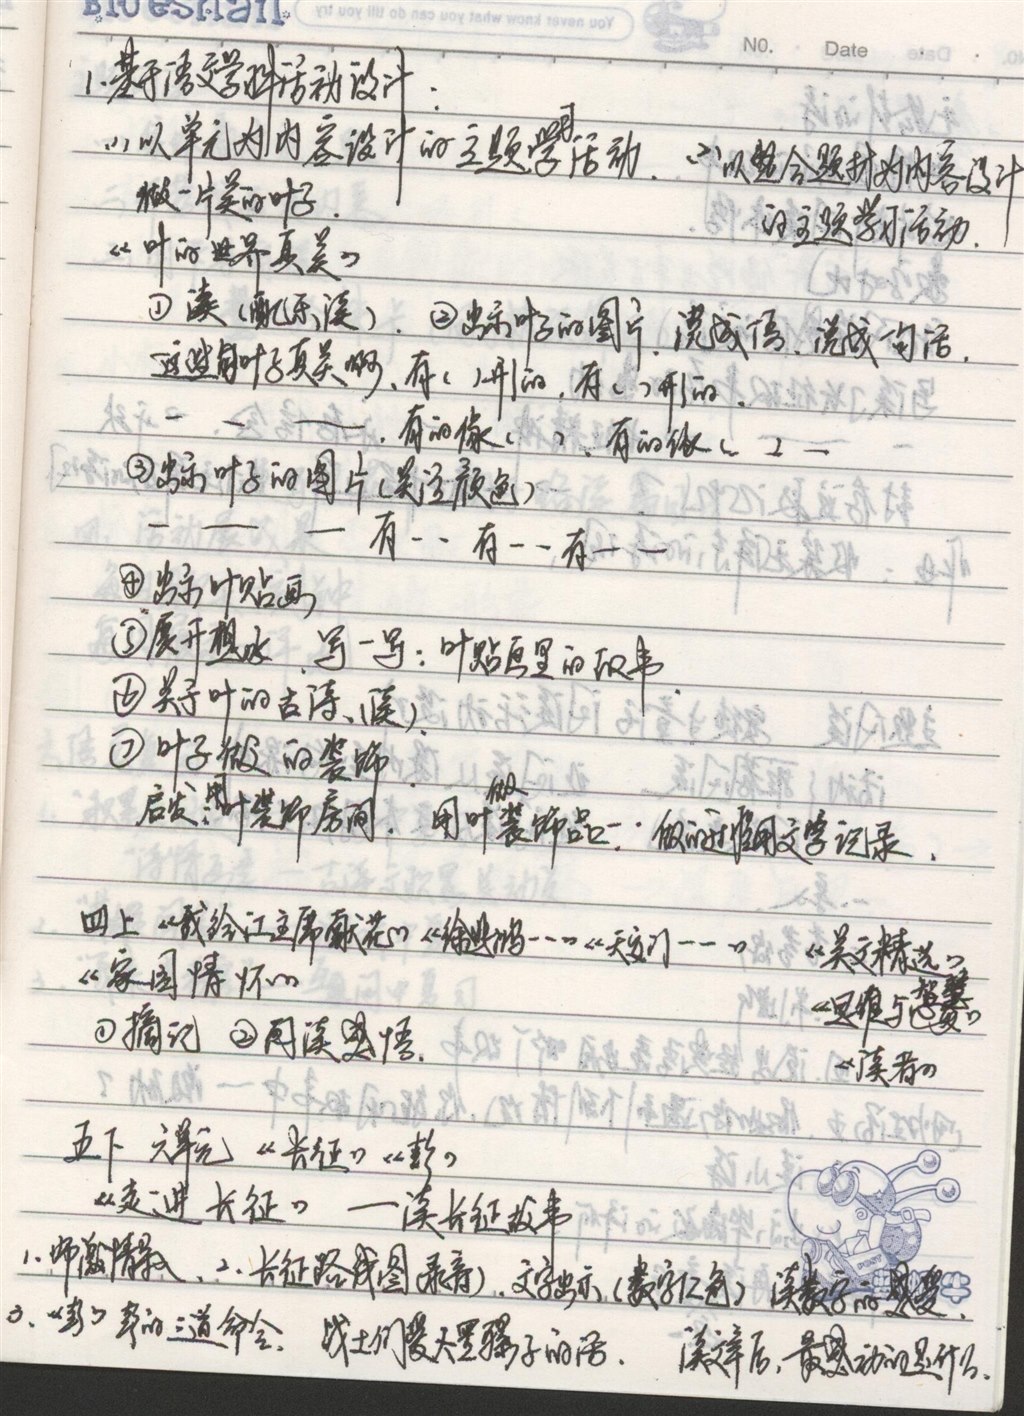 NO. Date
1. 基于语文学科活动设计：
(1) 以单元为内容设计的主题学习活动. (2) 以整合题材为内容设计
的主题学习活动.
做一片美的叶子.
《叶的世界真美》
① 读(配乐读). ② 出示叶子的图片, 说成语、说成句话.
这些树叶子真美啊, 有( )形的, 有( )形的.
有的像( ), 有的像( )
③ 出示叶子的图片(关注颜色)
有-- 有--有--
④ 出示叶贴画
⑤ 展开想象, 写一写: 叶贴画里的故事.
⑥ 关于叶的古诗、(读)
⑦ 叶子做的装饰
启发: 用叶装饰房间. 用叶做装饰品... 做的过程用文字记录.
四上 《我给江主席献花》《徐悲鸿---》《天安门---》 《美文精选》
《家国情怀》
《思维与智慧》
① 摘记 ② 再读感悟.
《读者》
五下 六单元 《长征》《彭》
《走进长征》 —读长征故事
1. 师激情导入. 2. 长征路线图(录音). 文字出示(数字红色) 读数字的感受.
3. 《彭》彭的三道命令. 战士们爱大黑骡子的话. 读文章后, 最感动的是什么.